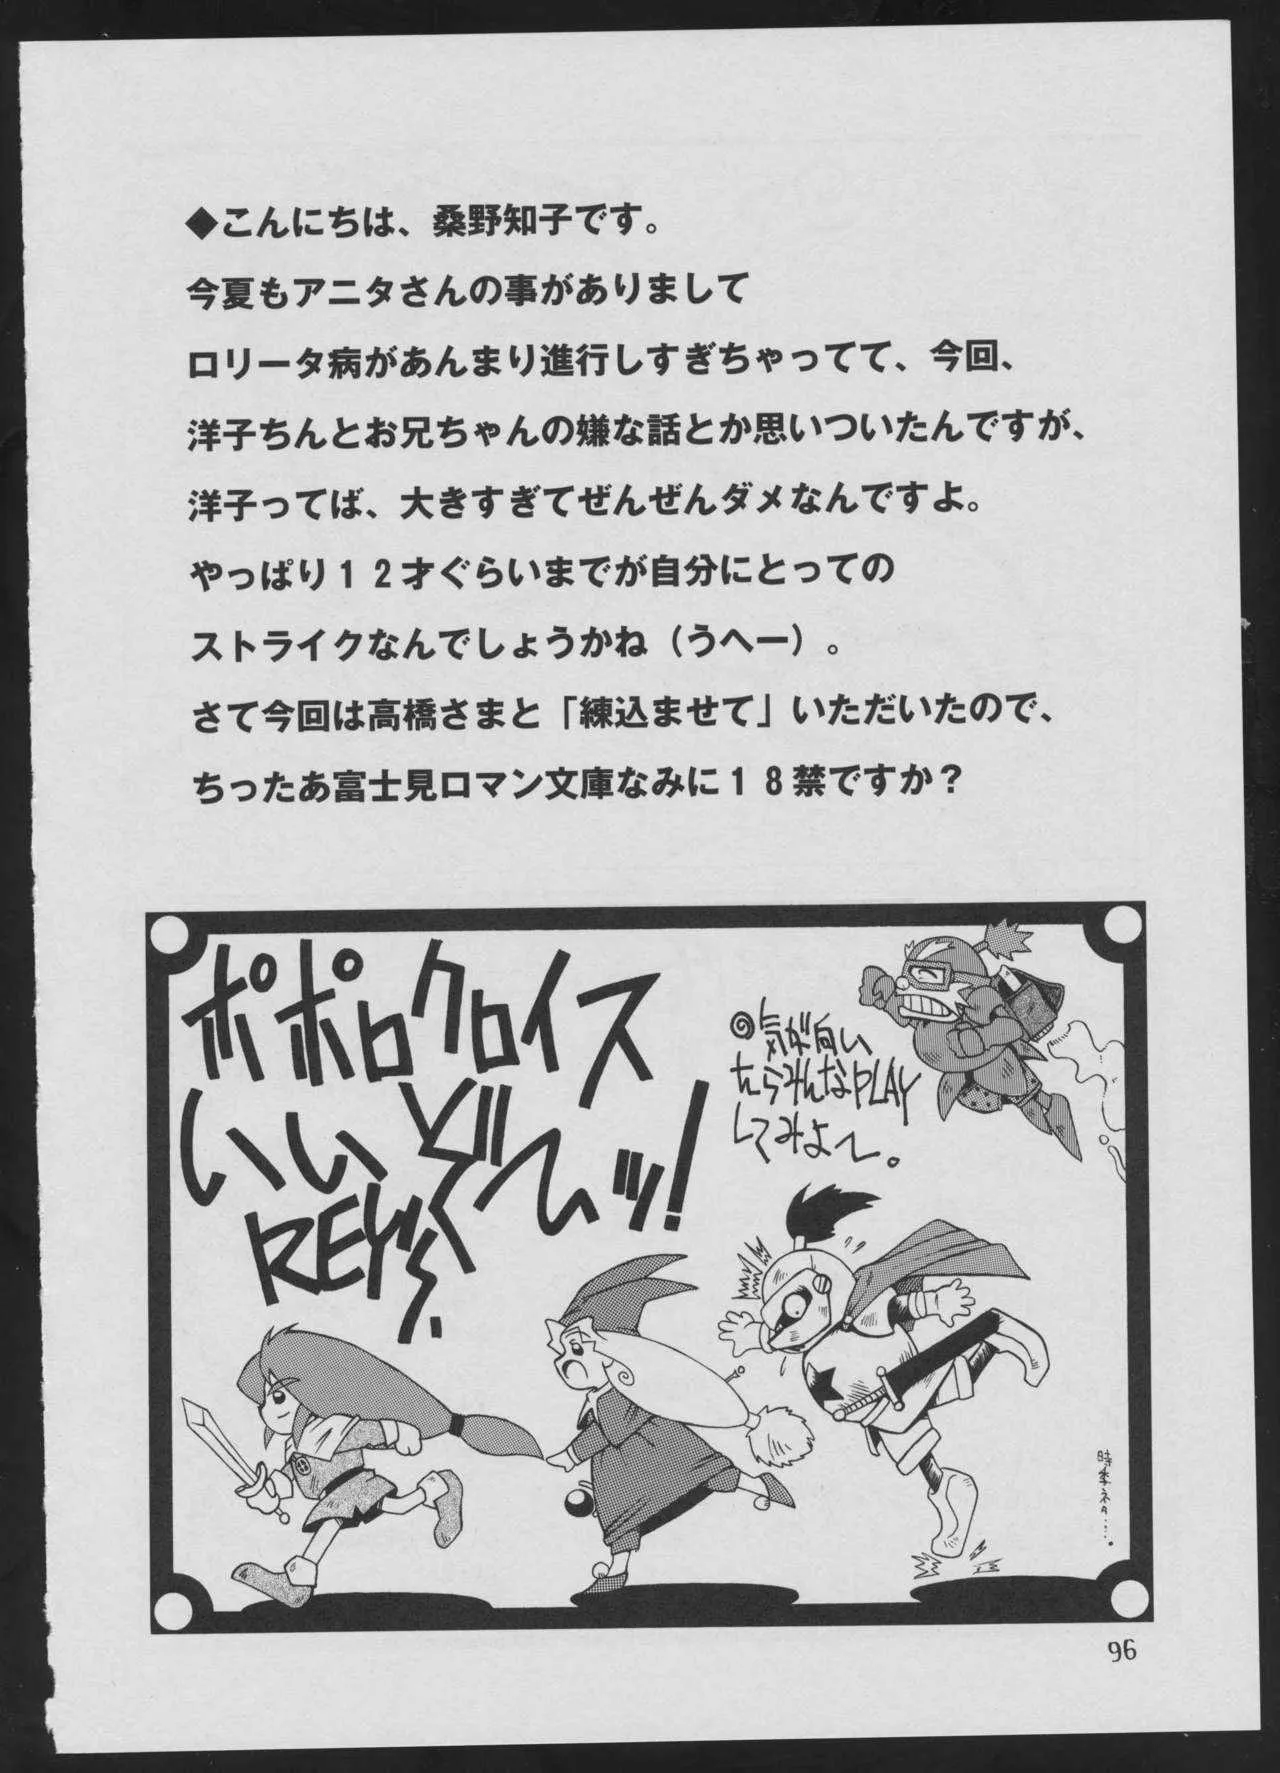 ◆こんにちは、桑野知子です。
今夏もアニタさんの事がありまして
ロリータ病があんまり進行しすぎちゃってて、今回、
洋子ちんとお兄ちゃんの嫌な話とか思いついたんですが、
洋子ってば、大きすぎてぜんぜんダメなんですよ。
やっぱり１２才ぐらいまでが自分にとっての
ストライクなんでしょうかね（うへー）。
さて今回は高橋さまと「練込ませて」いただいたので、
ちったあ富士見ロマン文庫なみに１８禁ですか？
ポポロクロイス
いいぞーッ！
REY
気が向い
たらみんなPLAY
してみよ〜。
時季ネタ…。
96